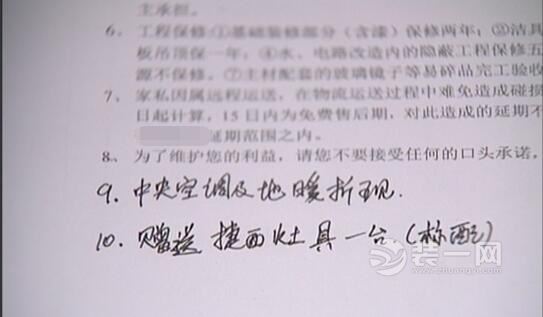 主承担。
6、工程保修:①基础装修部分(含漆)保修两年;③洁具
板吊顶保一年;④水、电路改造内的隐蔽工程保修五
源不保修。⑦主材配套的玻璃镜子等易碎品完工验收
7、家私因属远程运送,在物流运送过程中难免造成碰损
日起计算,15日内为免费售后期,对此造成的延期不
延期范围之内。
8、为了维护您的利益,请您不要接受任何的口头承诺。
9.中央空调及地暖折现.
10.赠送 捷西灶具一台(标配)
装一网
www.zhuangyi.com